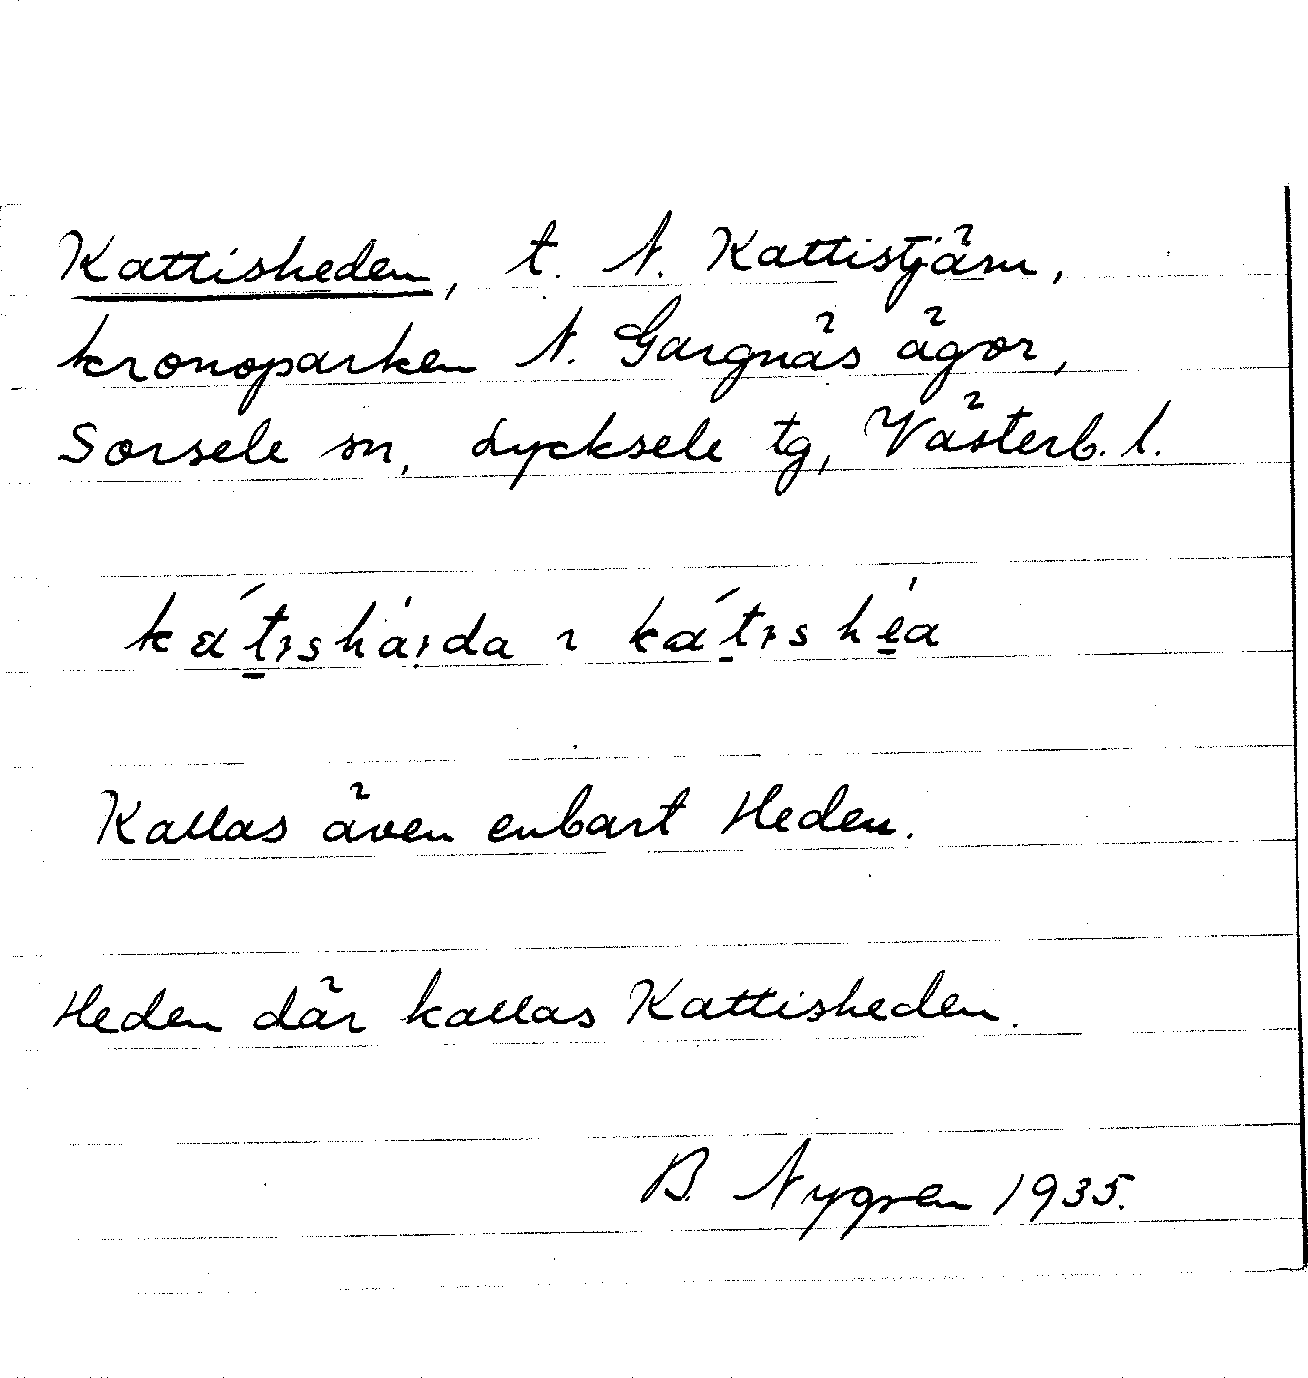 Kattisheden, t. N. Kattistjärn,
kronoparken N. Gargnäs ägor,
Sorsele sn, Lycksele tg, Västerb. l.
Kallas även enbart Heden.
Heden där kallas Kattisheden.
B. Nygren 1935.